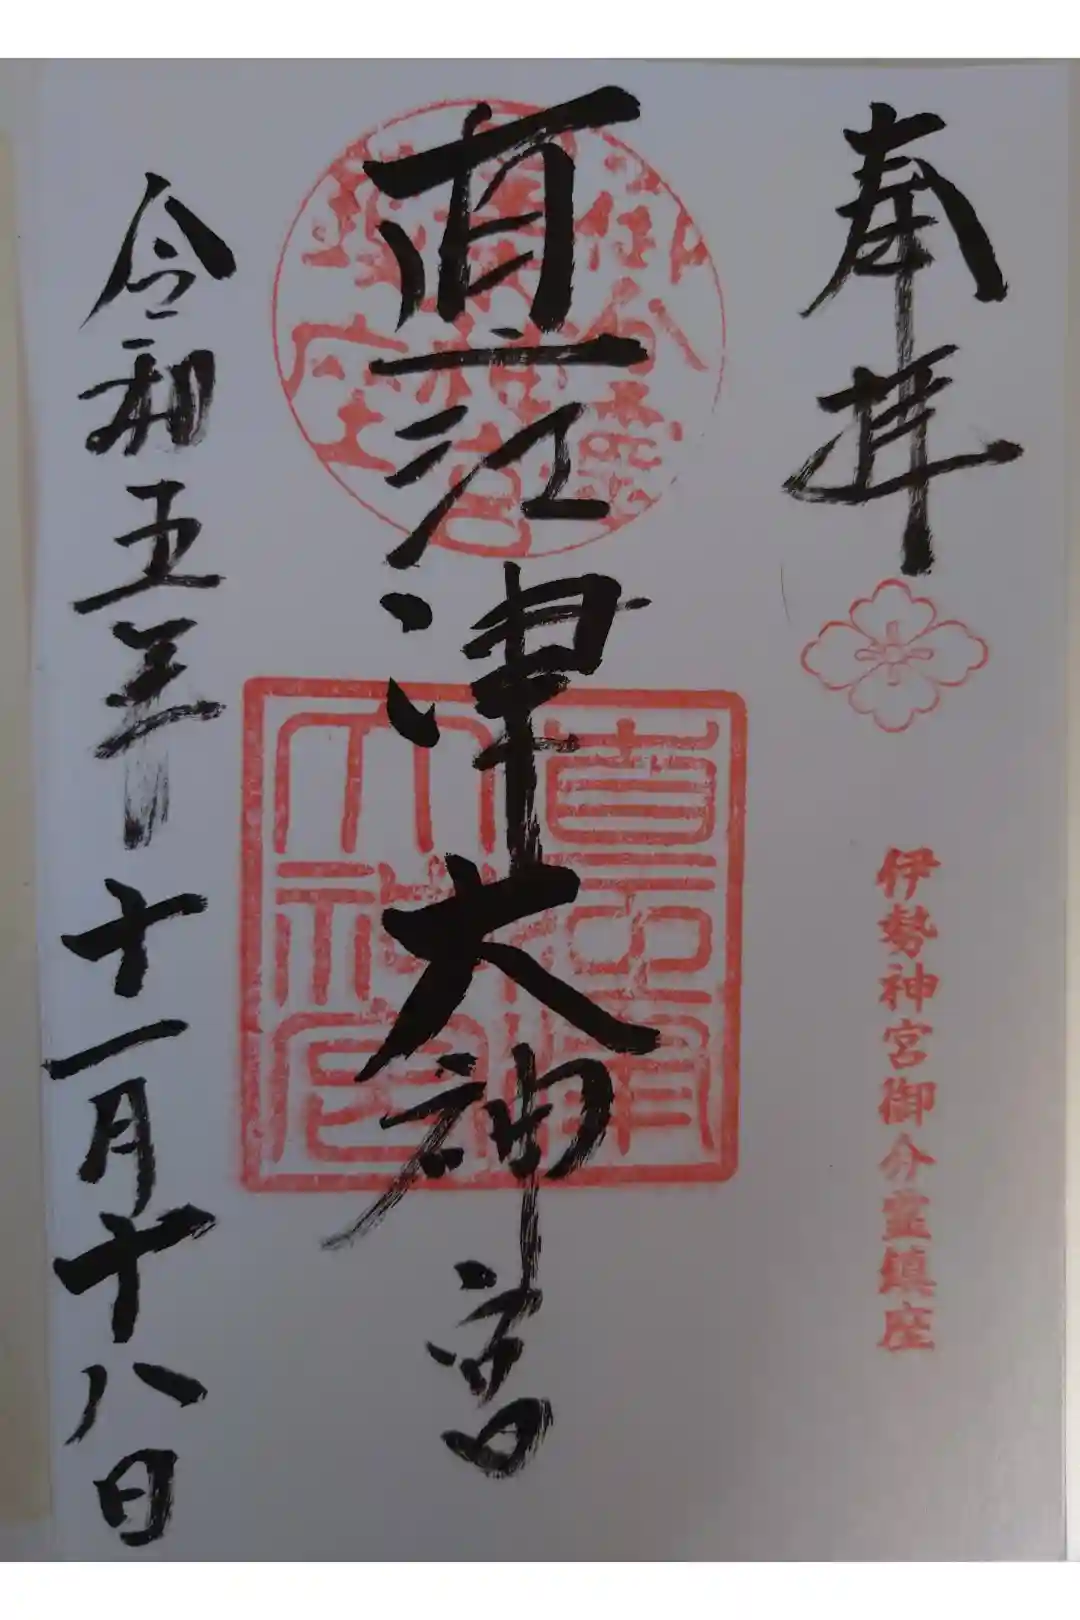 奉拝
伊勢神宮御分霊鎮座
直江津大神宮
直江津
大神宮
令和五年十一月十八日